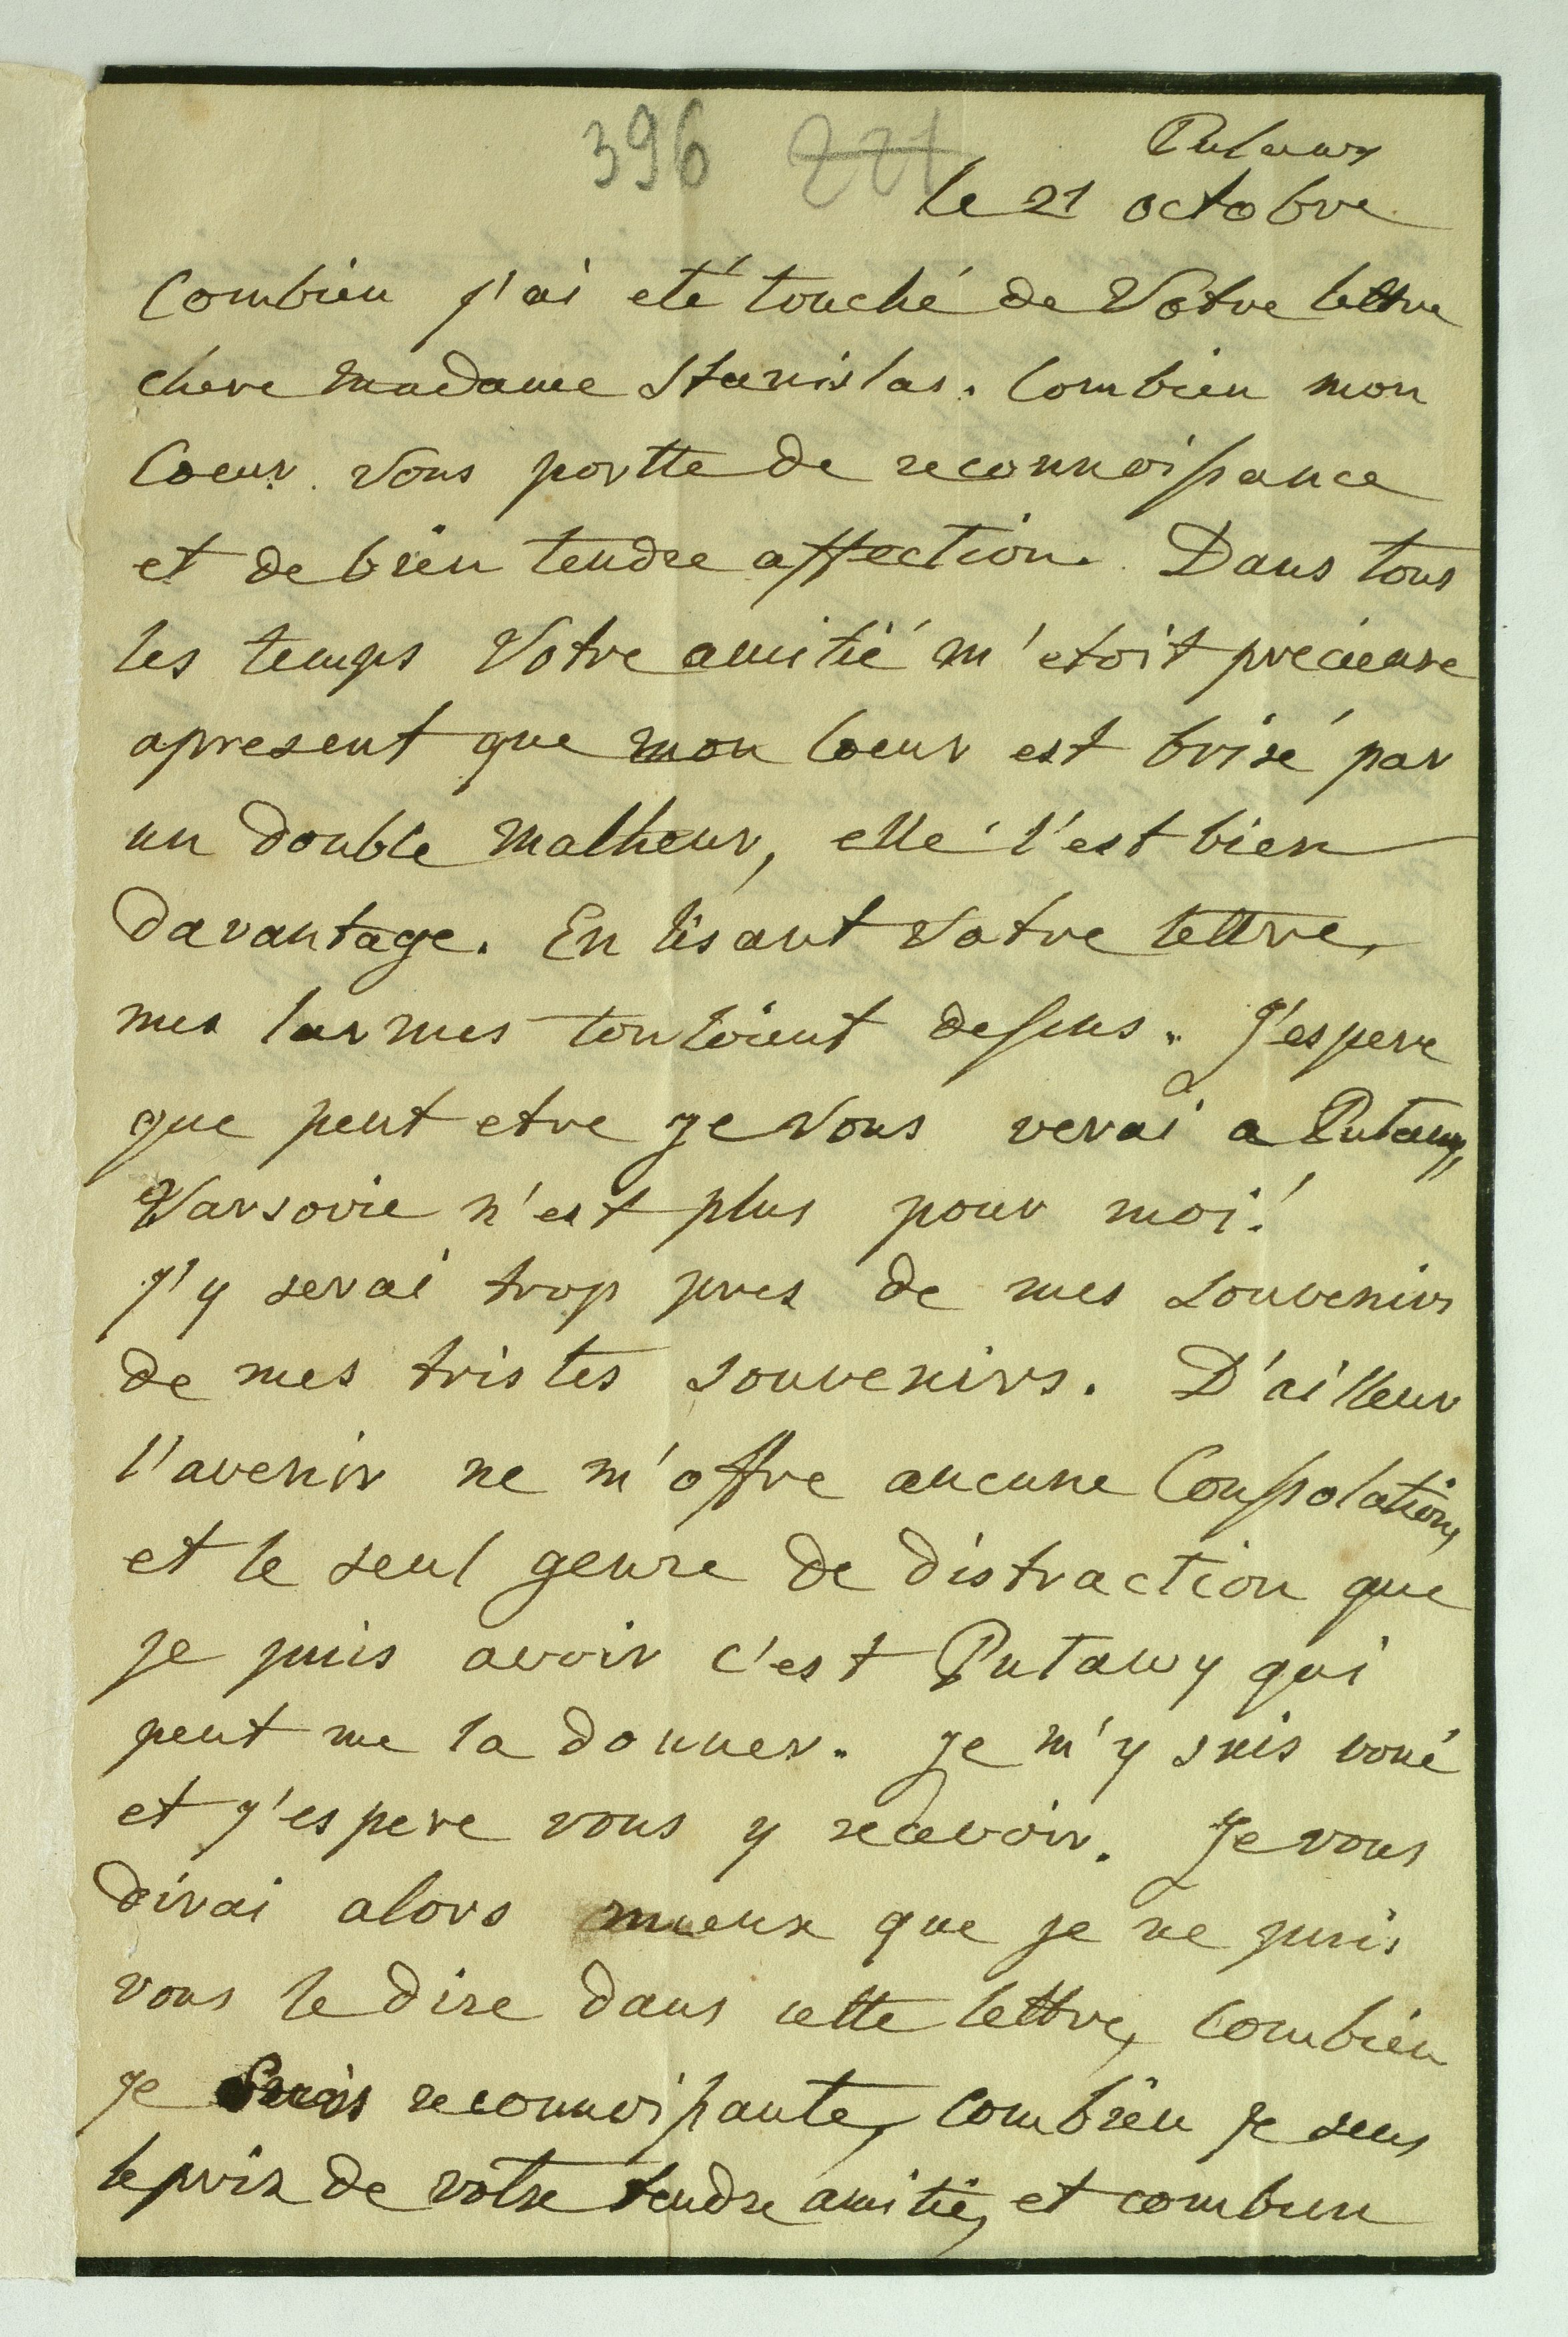 396 221
Pulawy
le 21 octobre
Combien j'ai eté touché de Votre lettre
chere madame Stanislas. Combien mon
Coeur. Vous portte de reconnoissance
et de bien tendre affection. Dans tous
les temps Votre amitié m'etoit precieuse
apresent que mon Coeur est brisé par
un double malheur, elle l'est bien
davantage. En lisant Votre lettre,
mes larmes couloient dessus. J'espere
que peut etre je Vous verai a Putawy,
Varsovie n'est plus pour moi!
j'y serai trop pres de mes souvenirs
de mes tristes souvenirs. D'ailleur
l'avenir ne m'offre aucune Consolation,
et le seul genre de distraction que
je puis avoir c'est Putawy qui
peut me la donner. Je m'y suis voué
et j'espere vous y recevoir. Je vous
dirai alors mieux que je ne puis
vous le dire dans cette lettre, Combien
je Suis reconnoissante, Combien je sens
le prix de votre tendre amitié, et combien